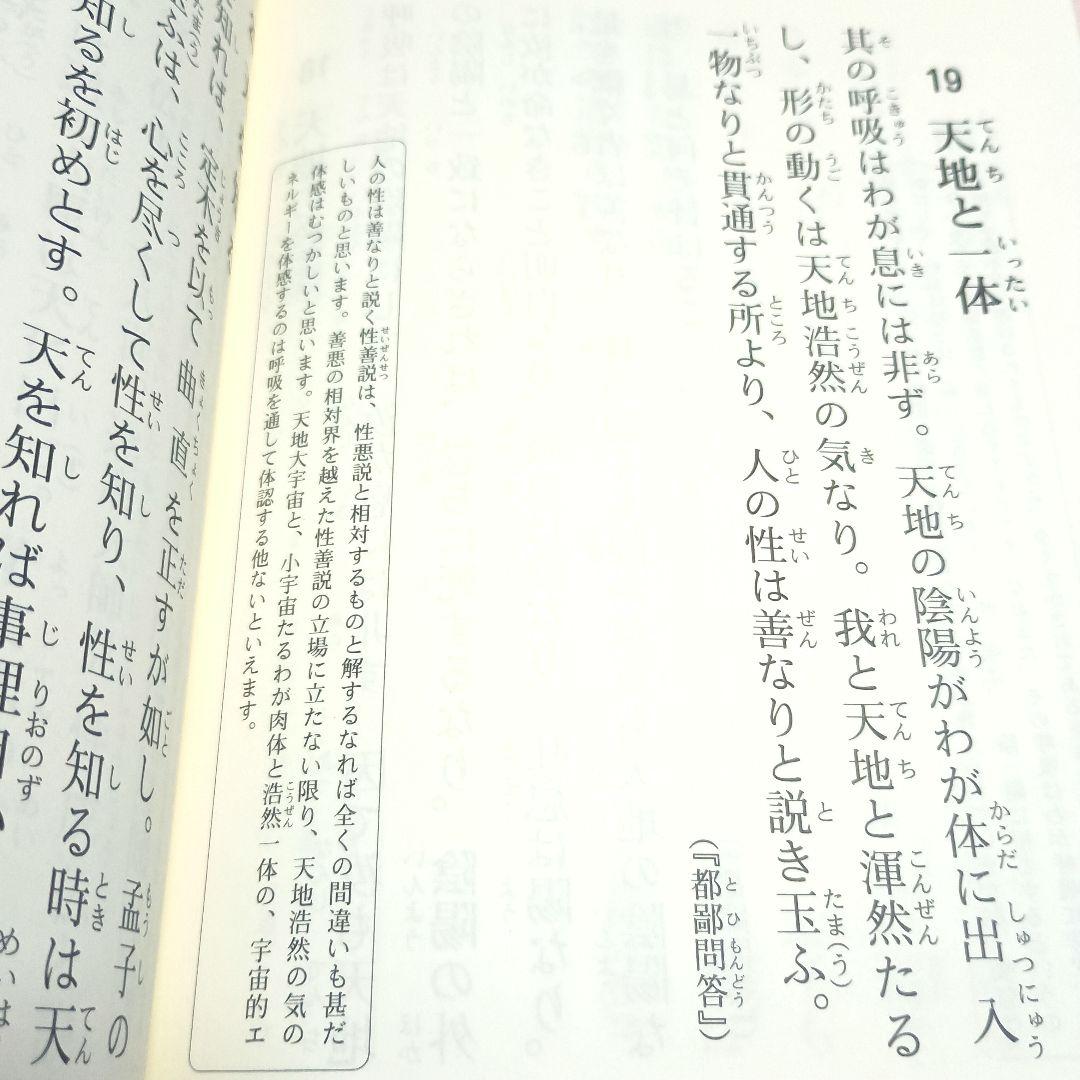 19 天地と一体
其の呼吸はわが息には非ず。天地の陰陽がわが体に出入
し、形の動くは天地浩然の気なり。我と天地と渾然たる
一物なりと貫通する所より、人の性は善なりと説き玉ふ。
(『都鄙問答』)
人の性は善なりと説く性善説は、性悪説と相対するものと解するなれば全くの間違いも甚だ
しいものと思います。善悪の相対界を越えた性善説の立場に立たない限り、天地浩然の気の
体感はむつかしいと思います。天地大宇宙と、小宇宙たるわが肉体と浩然一体の、宇宙的エ
ネルギーを体感するのは呼吸を通して体認する他ないといえます。
知れば、定木を以て曲直を正すが如し。孟子の
ふは、心を尽くして性を知り、性を知る時は天
知るを初めとす。天を知れば事理